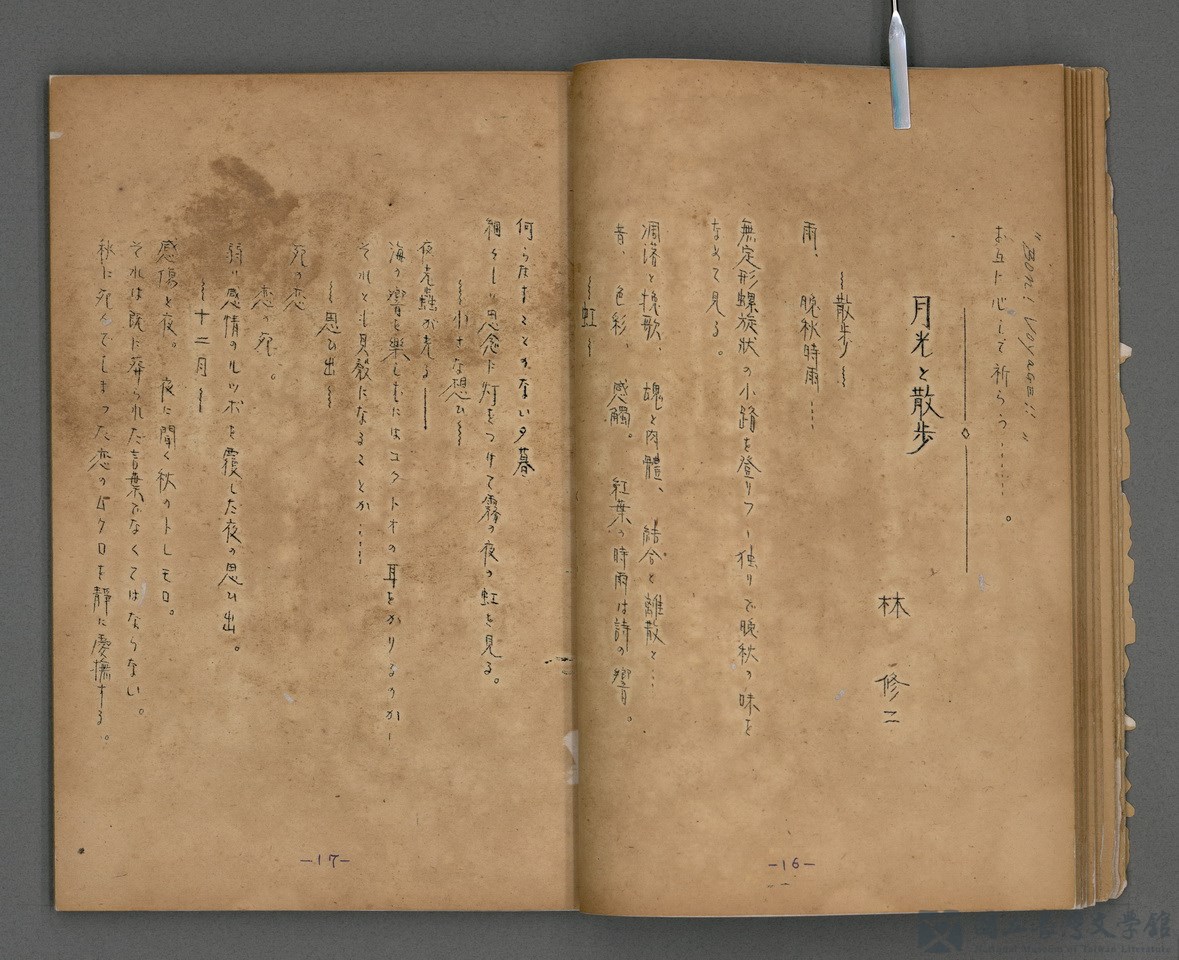 "BON! VOYAGE!!"
お互に心して祈らう……。
月光と散歩
林 修二
散歩
雨、 晩秋時雨……
無定形螺旋状の小路を登りつゝ独りで晩秋の味を
なめて見る。
凋落と挽歌、 魂と肉體、 結合と離散と…
音、色彩、 感觸。 紅葉の時雨は詩の響。
虹
何らなすことのない夕暮
細々しい思念に灯をつけて霧の夜の虹を見る。
小さな想ひ
夜光蟲が光る——
海の響を楽しむにはコクトオの耳をかりるのか—
それとも貝殻になることか……
思ひ出
死の恋
恋の死。
弱い感情のルツボを覆した夜の思ひ出。
十二月
感傷と夜。 夜に聞く秋のトレモロ。
それは既に葬られた言葉でなくてはならない。
秋に死んでしまった恋のムクロを静に慶撫する。
—16—
—17—
国立台湾文学館
National Museum of Taiwan Literature